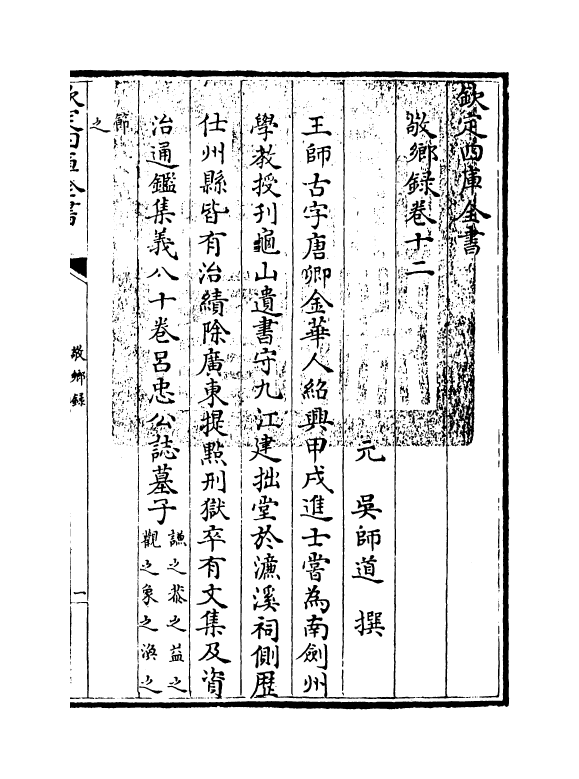 欽定四庫全書
敬鄉録卷十二
元 吳師道 撰
王師古字唐卿金華人紹興甲戌進士嘗為南劍州
學教授刋龜山遺書守九江建拙堂於濂溪祠側歴
仕州縣皆有治績除廣東提點刑獄卒有文集及資
治通鑑集義八十卷呂忠公誌墓子
謙之蔡之益之
觀之象之渙之
節
之
欽定四庫全書
敬鄉録
一